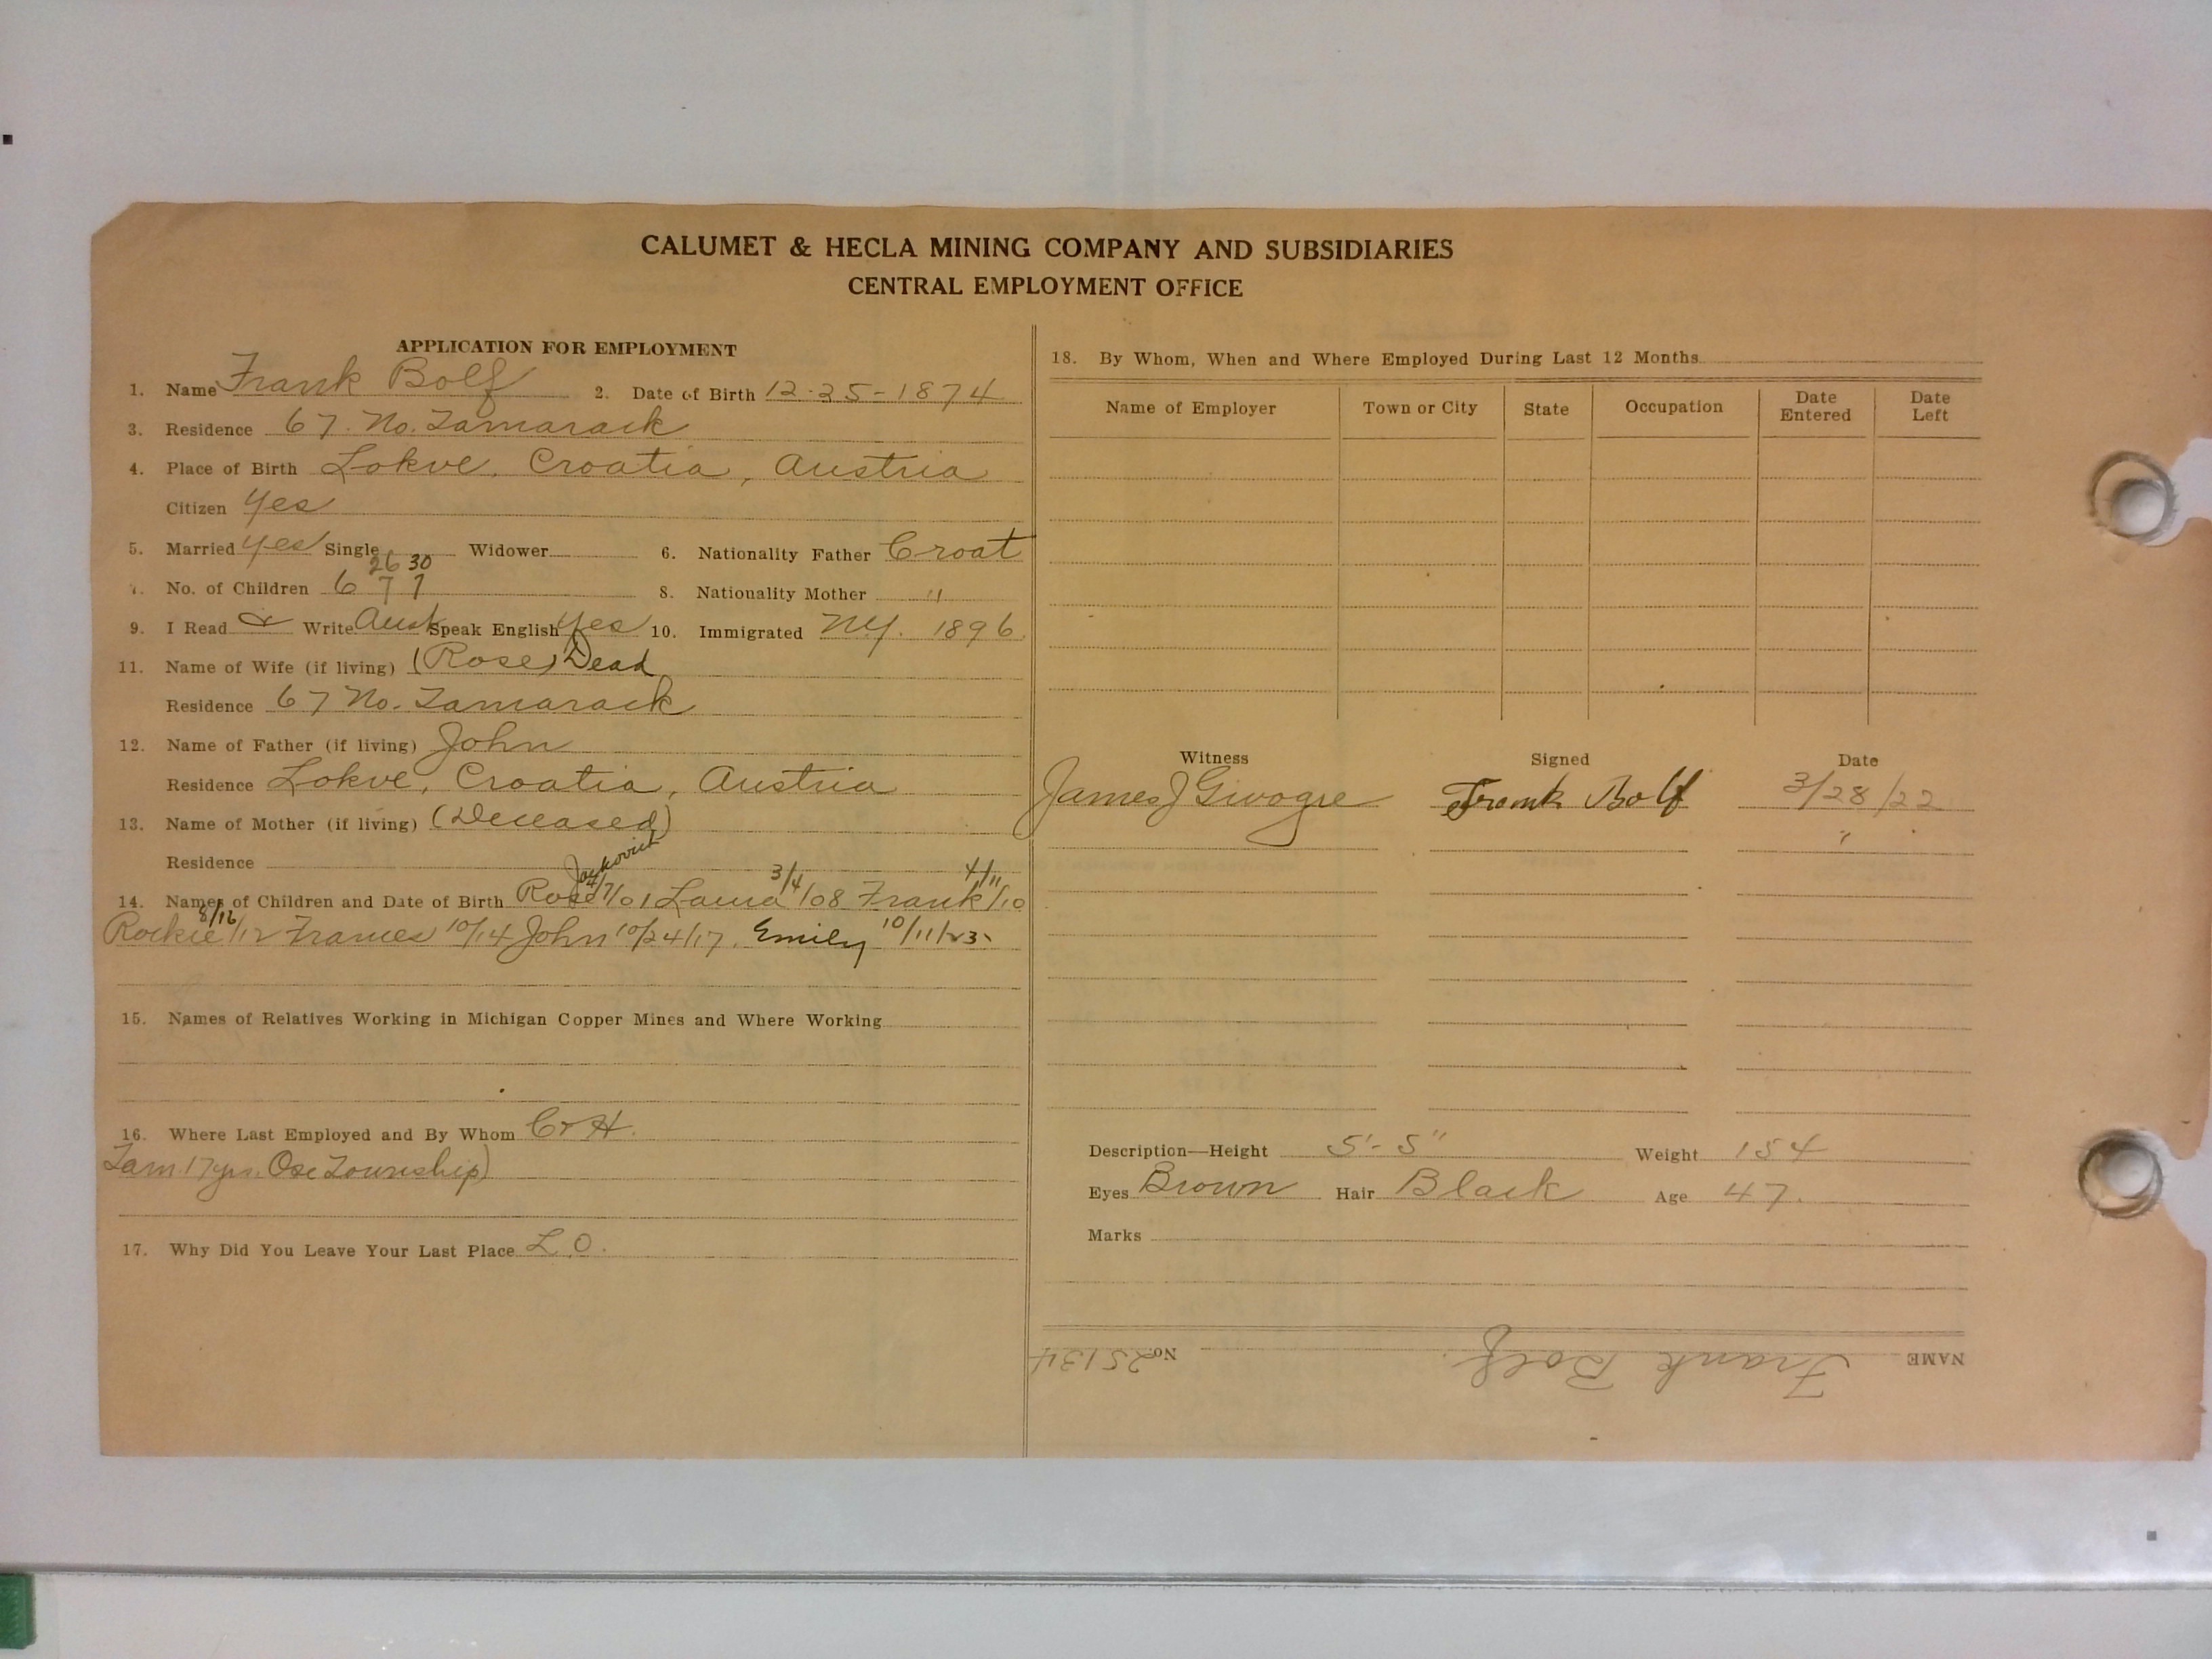 CALUMET & HECLA MINING COMPANY AND SUBSIDIARIES
CENTRAL EMPLOYMENT OFFICE
APPLICATION FOR EMPLOYMENT
1. Name Frank Bolf 2. Date of Birth 12-25-1874
3. Residence 67. No. Tamarack
4. Place of Birth Lokve, Croatia, Austria
Citizen Yes
5. Married Yes Single Widower 6. Nationality Father Croat
26 30
No. of Children 6 7 7 8. Nationality Mother "
9. I Read & Write Aust Speak English Yes 10. Immigrated N.Y. 1896
11. Name of Wife (if living) (Rose) Dead
Residence 67 No. Tamarack
12. Name of Father (if living) John
Residence Lokve, Croatia, Austria
13. Name of Mother (if living) (Deceased)
Residence
14. Names of Children and Date of Birth Rose 4/7/01 Laura 3/4/08 Frank 4/11/10
Rockie 8/16/12 Frances 10/14 John 10/24/17. Emily 10/11/23
15. Names of Relatives Working in Michigan Copper Mines and Where Working
16. Where Last Employed and By Whom C & H.
Tam 17 yrs. Township)
17. Why Did You Leave Your Last Place L.O.
18. By Whom, When and Where Employed During Last 12 Months
Name of Employer Town or City State Occupation Date Entered Date Left
Witness Signed Date
James J Frank Bolf 3/28/22
"
Description—Height 5'-5" Weight 154
Eyes Brown Hair Black Age 47.
Marks
NAME Frank Bolf. No. 25134